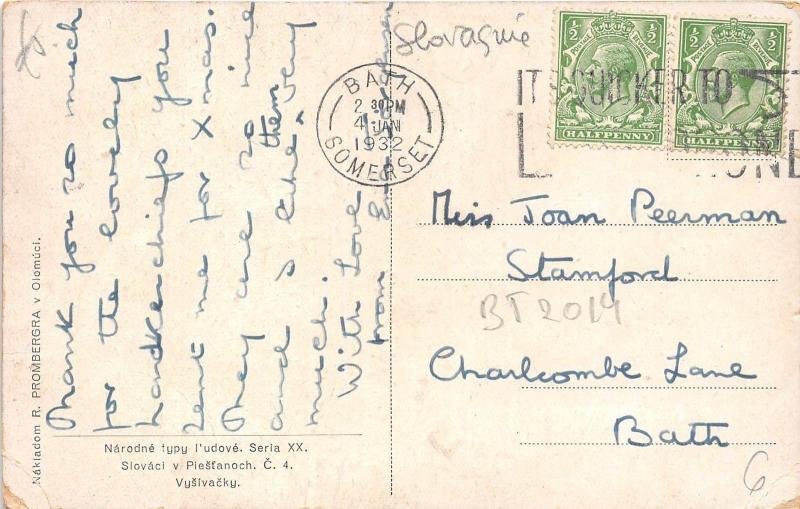 Thank you so much
for the lovely
handkerchiefs you
sent me for Xmas.
They are so nice
and I like them very
much.
With Love
from
Nákladom R. PROMBERGRA v Olomúci.
Národné typy l'udové. Seria XX.
Slováci v Piešťanoch. Č. 4.
Vyšívačky.
Slovaquie
BATH
2 30PM
4 JAN
1932
SOMERSET
IT QUICKER TO
½ ½
HALFPENNY
½ ½
HALFPENNY
Miss Joan Peerman
Stamford
BT2014
Charlcombe Lane
Bath
6